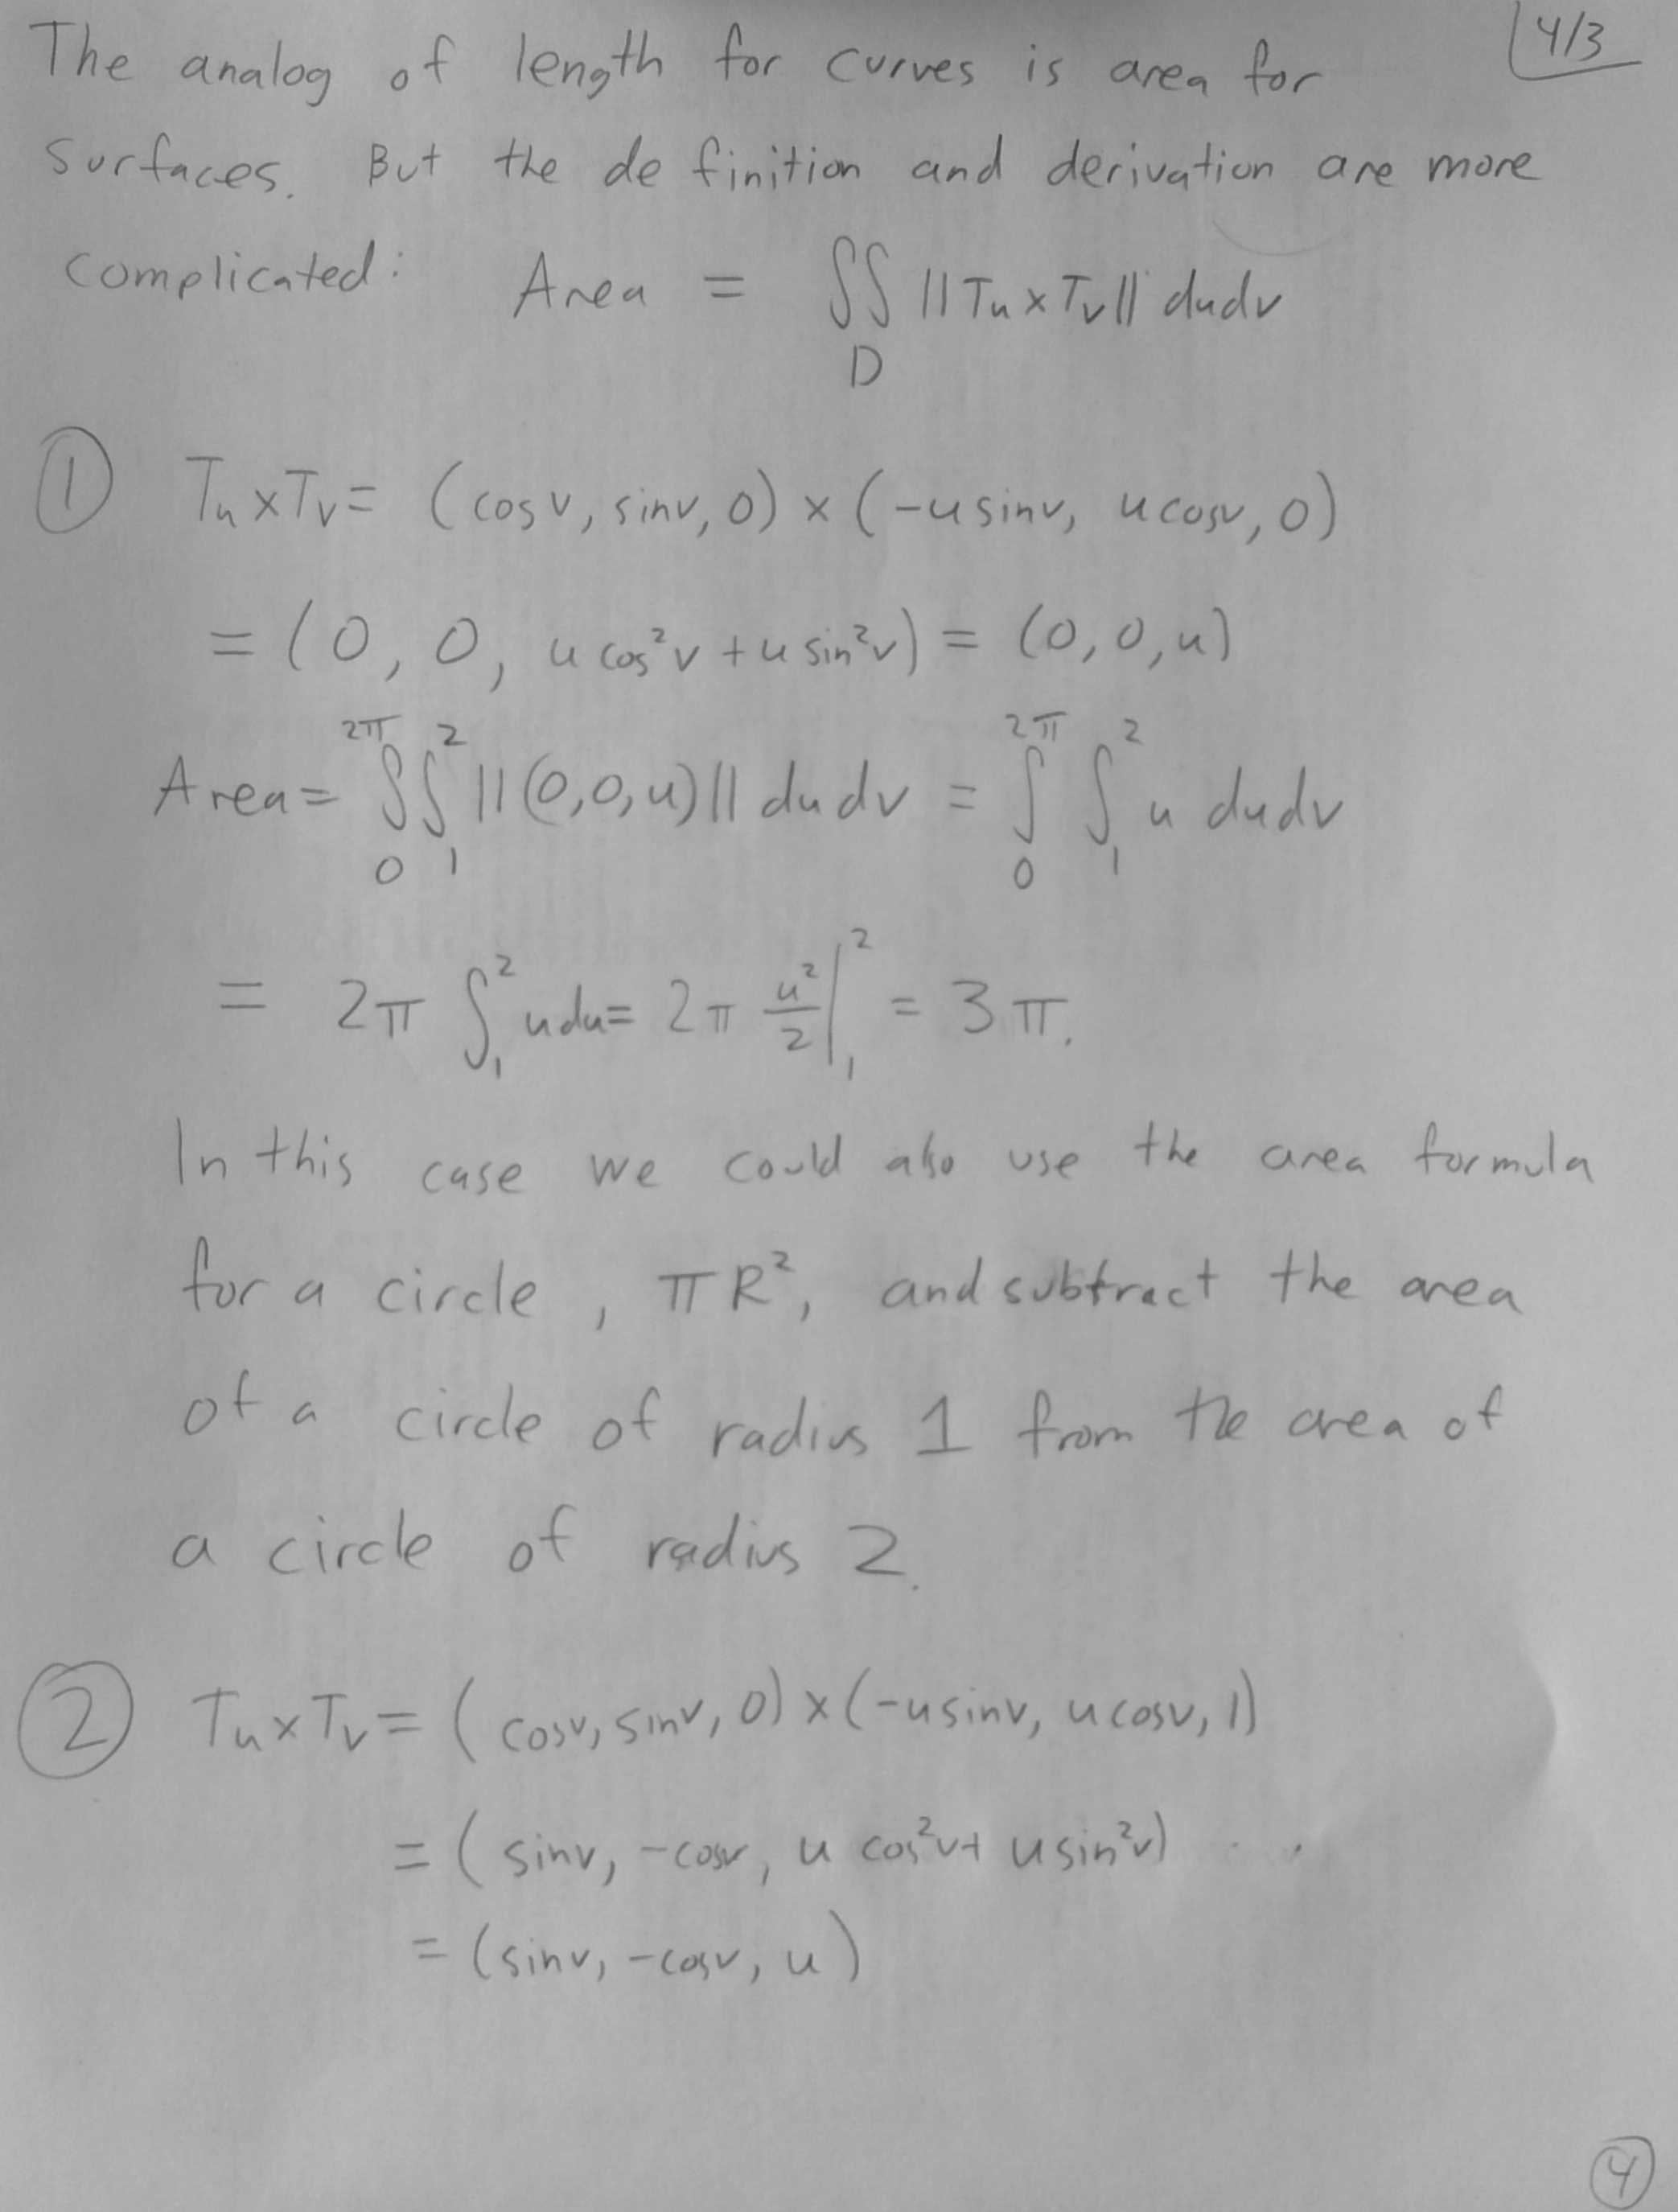 The analog of length for curves is area for 4/3
surfaces. But the definition and derivation are more
complicated: Area = ∬ ||Tu×Tv|| dudv
D
① Tu×Tv= (cosv, sinv, 0) × (-usinv, ucosv, 0)
= (0, 0, u cos²v + u sin²v) = (0,0,u)
Area = ∫₀^2π ∫₁² ||(0,0,u)|| dudv = ∫₀^2π ∫₁² u dudv
= 2π ∫₁² udu = 2π u²/2 |₁² = 3π.
In this case we could also use the area formula
for a circle, πR², and subtract the area
of a circle of radius 1 from the area of
a circle of radius 2.
② Tu×Tv = (cosv, sinv, 0) × (-usinv, ucosv, 1)
= (sinv, -cosv, u cos²v + usin²v)
= (sinv, -cosv, u)
④